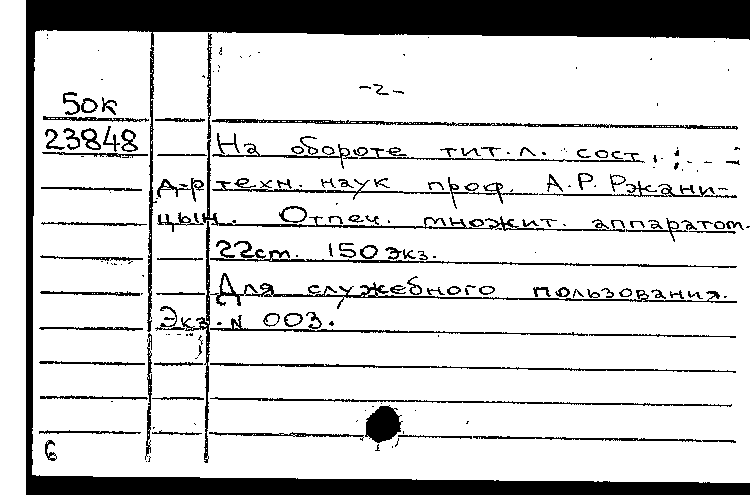 -2-
50к
23848
На обороте тит. л. сост.:
д-р техн. наук проф. А.Р. Ржани-
цын. Отпеч. множит. аппаратом.
22 см. 150 экз.
Для служебного пользования.
Экз. N 003.
6